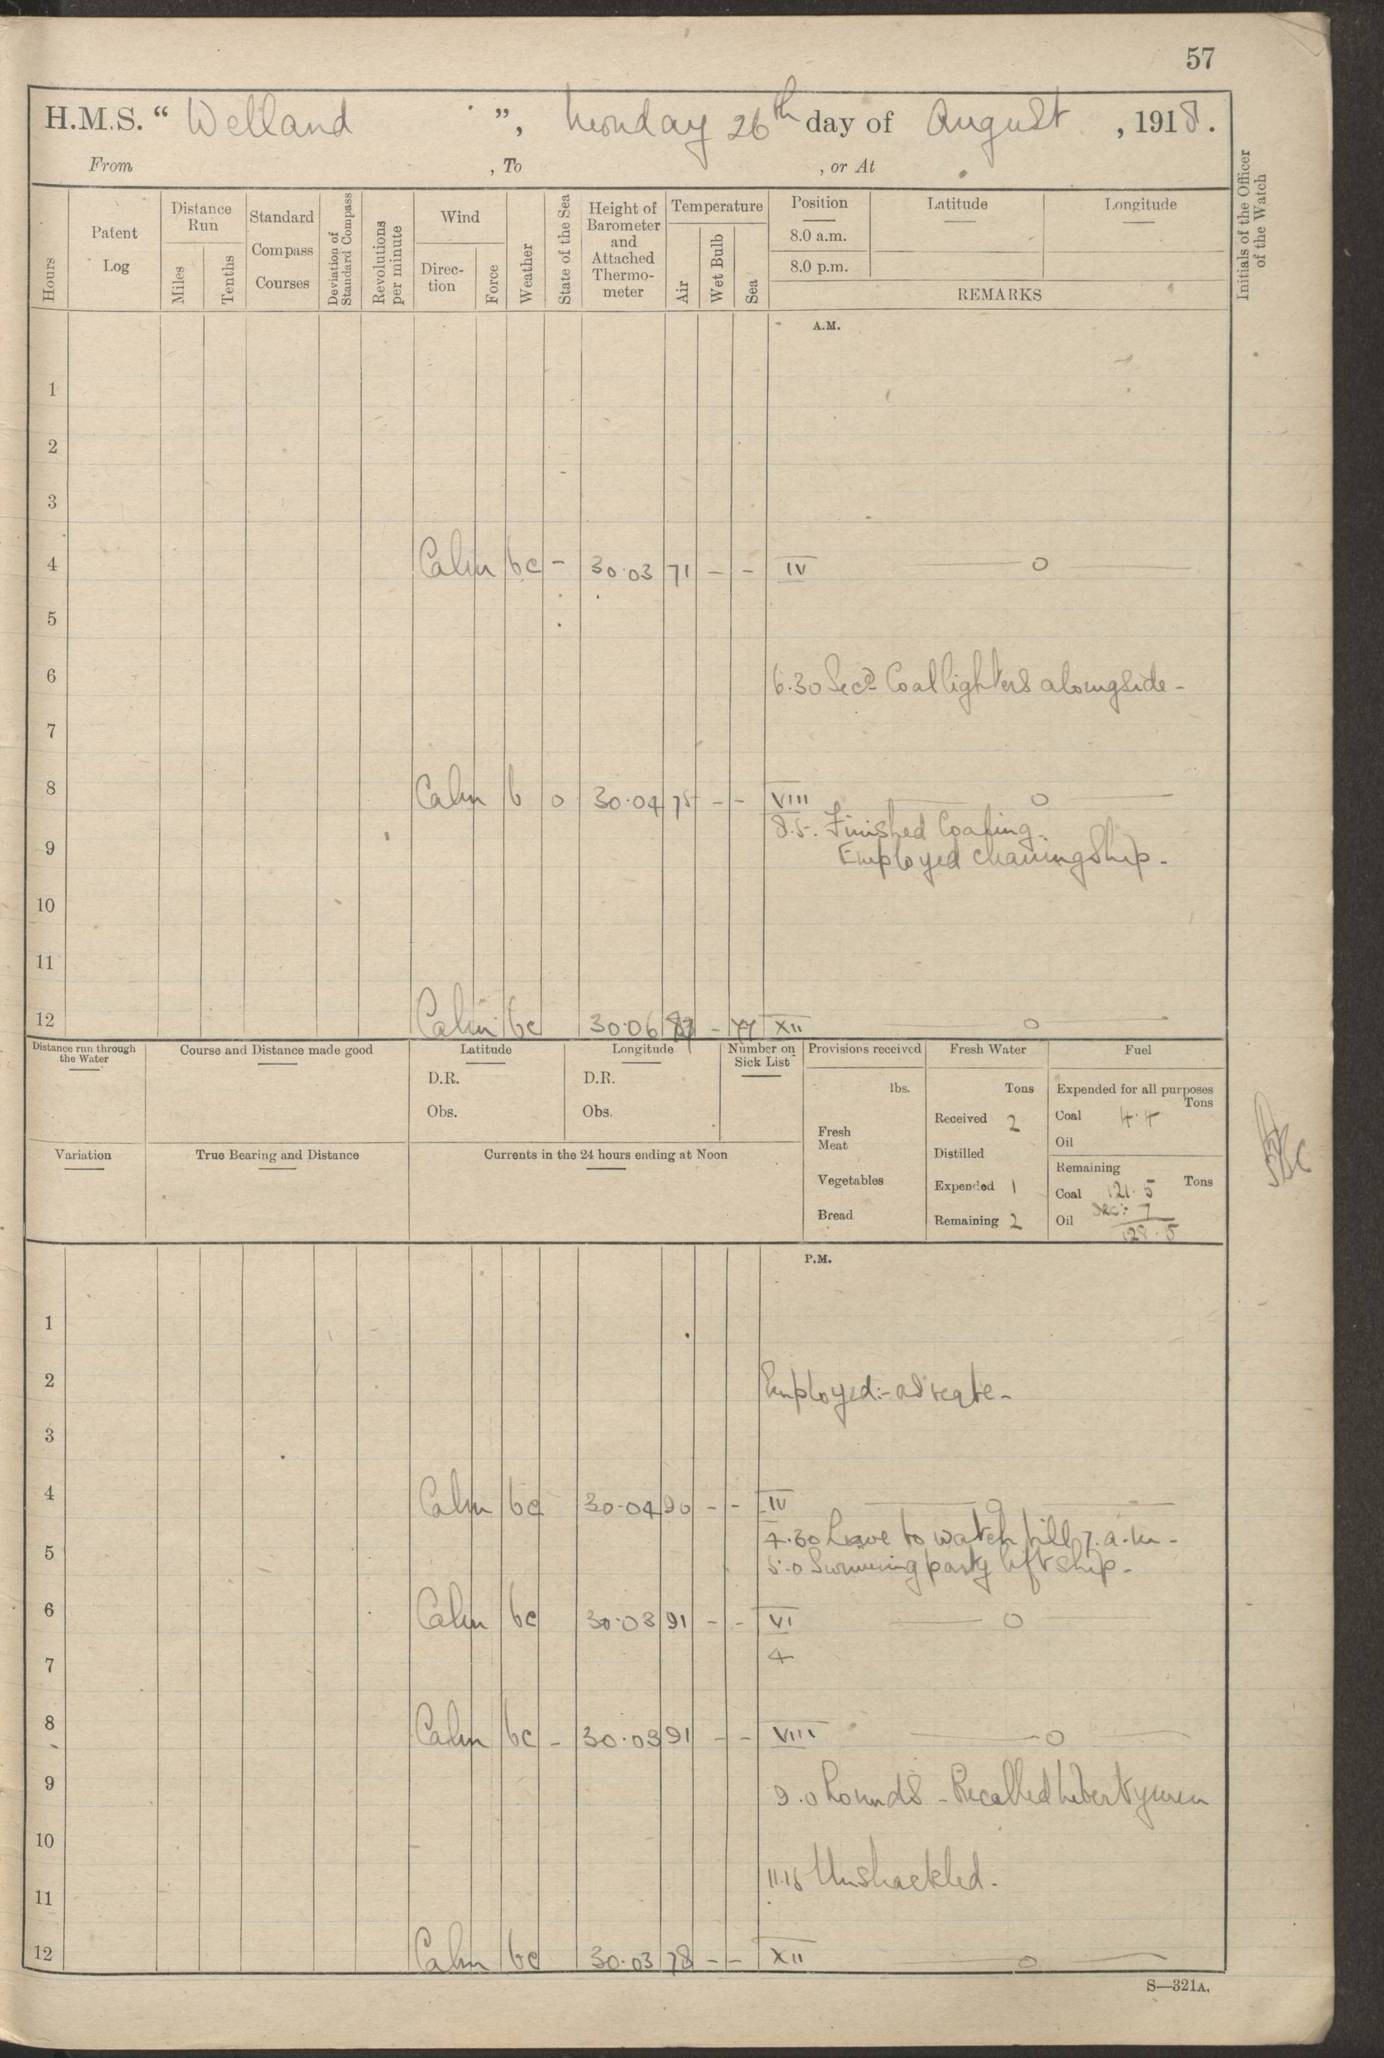 57
H.M.S. “ Welland ”, Monday 26th day of August , 1918.
From , To , or At
Hours
Patent Log
Distance Run
Miles
Tenths
Standard Compass Courses
Deviation of Standard Compass
Revolutions per minute
Wind
Direction
Force
Weather
State of the Sea
Height of Barometer and Attached Thermometer
Temperature
Air
Wet Bulb
Sea
Position
8.0 a.m.
8.0 p.m.
Latitude
Longitude
REMARKS
Initials of the Officer of the Watch
A.M.
1
2
3
4 Calm bc - 30.03 71 - - IV o
5
6 6.30 Recd Coal lighters alongside -
7
8 Calm b o 30.04 75 - - VIII o
8.5. Finished Coaling.
9 Employed cleaning Ship -
10
11
12 Calm bc 30.06 - 77 XII o
Distance run through the Water
Course and Distance made good
Latitude
D.R.
Obs.
Longitude
D.R.
Obs.
Number on Sick List
Variation
True Bearing and Distance
Currents in the 24 hours ending at Noon
Provisions received
lbs.
Fresh Meat
Vegetables
Bread
Fresh Water
Tons
Received 2
Distilled
Expended 1
Remaining 2
Fuel
Expended for all purposes
Tons
Coal 4.4
Oil
Remaining
Tons
Coal 121.5
Rec: 7
Oil 128.5
P.M.
1
2 Employed:- as reqte -
3
4 Calm bc 30.04 90 - - IV o
4.30 Leave to watch till 7. a.m -
5 5.0 Swimming party left ship -
6 Calm bc 30.03 91 - - VI o
7 4
8 Calm bc - 30.03 91 - - VIII o
9 9.0 Rounds - Recalled libertymen
10
11.15 Unshackled -
11
12 Calm bc 30.03 78 - - XII o
S—321A.